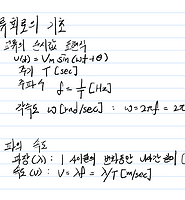 류회로의 기초
교류의 순시값 표현식
v(t) = Vm sin(ωt+θ)
주기 T [sec]
주파수 f = 1/T [Hz]
각속도 ω [rad/sec] : ω = 2πf = 2π
파의 속도
파장(λ) : 1 사이클의 변화동안
속도(v) : v = λf = λ/T [m/sec]